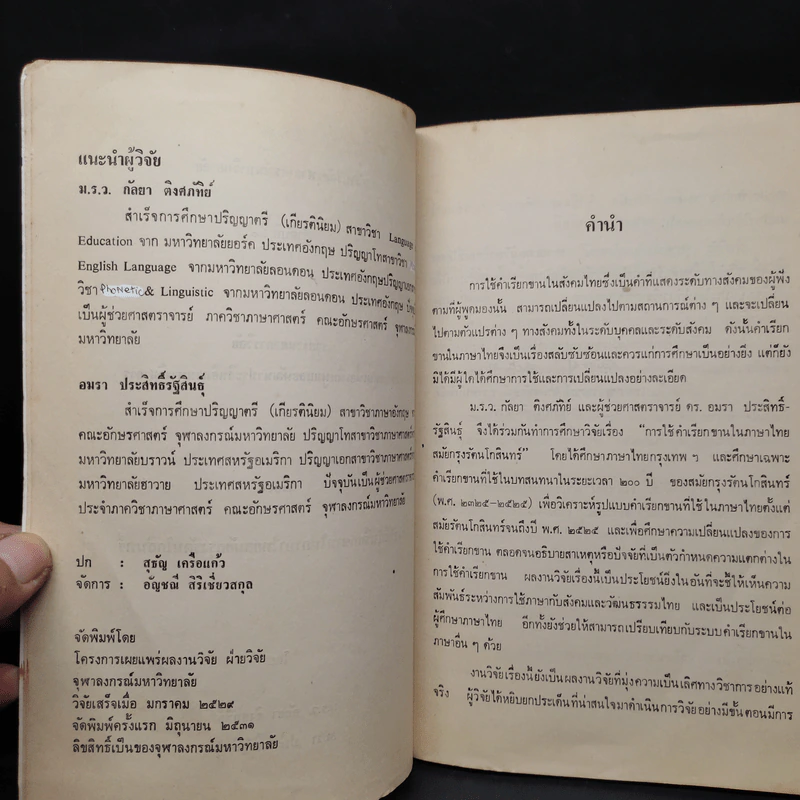 แนะนำผู้วิจัย
ม.ร.ว. กัลยา ติงศภัทิย์
สำเร็จการศึกษาปริญญาตรี (เกียรตินิยม) สาขาวิชา Language
Education จาก มหาวิทยาลัยยอร์ค ประเทศอังกฤษ ปริญญาโทสาขาวิชา
English Language จากมหาวิทยาลัยลอนดอน ประเทศอังกฤษปริญญาเอก
วิชา Phonetic & Linguistic จากมหาวิทยาลัยลอนดอน ประเทศอังกฤษ
เป็นผู้ช่วยศาสตราจารย์ ภาควิชาภาษาศาสตร์ คณะอักษรศาสตร์ จุฬาลงกรณ์
มหาวิทยาลัย
อมรา ประสิทธิ์รัฐสินธุ์
สำเร็จการศึกษาปริญญาตรี (เกียรตินิยม) สาขาวิชาภาษาอังกฤษ
คณะอักษรศาสตร์ จุฬาลงกรณ์มหาวิทยาลัย ปริญญาโทสาขาวิชาภาษาศาสตร์
มหาวิทยาลัยบราวน์ ประเทศสหรัฐอเมริกา ปริญญาเอกสาขาวิชาภาษาศาสตร์
มหาวิทยาลัยฮาวาย ประเทศสหรัฐอเมริกา ปัจจุบันเป็นผู้ช่วยศาสตราจารย์
ประจำภาควิชาภาษาศาสตร์ คณะอักษรศาสตร์ จุฬาลงกรณ์มหาวิทยาลัย
ปก : สุธัญ เครือแก้ว
จัดการ : อัญชณี สิริเชี่ยวสกุล
จัดพิมพ์โดย
โครงการเผยแพร่ผลงานวิจัย ฝ่ายวิจัย
จุฬาลงกรณ์มหาวิทยาลัย
วิจัยเสร็จเมื่อ มกราคม ๒๕๒๙
จัดพิมพ์ครั้งแรก มิถุนายน ๒๕๓๑
ลิขสิทธิ์เป็นของจุฬาลงกรณ์มหาวิทยาลัย
คำนำ
การใช้คำเรียกขานในสังคมไทยซึ่งเป็นคำที่แสดงระดับทางสังคมของผู้ฟัง
ตามที่ผู้พูดมองนั้น สามารถเปลี่ยนแปลงไปตามสถานการณ์ต่าง ๆ และจะเปลี่ยน
ไปตามตัวแปรต่าง ๆ ทางสังคมทั้งในระดับบุคคลและระดับสังคม ดังนั้นคำเรียก
ขานในภาษาไทยจึงเป็นเรื่องสลับซับซ้อนและควรแก่การศึกษาเป็นอย่างยิ่ง แต่ก็ยัง
มิได้มีผู้ใดได้ศึกษาการใช้และการเปลี่ยนแปลงอย่างละเอียด
ม.ร.ว. กัลยา ติงศภัทิย์ และผู้ช่วยศาสตราจารย์ ดร. อมรา ประสิทธิ์-
รัฐสินธุ์ จึงได้ร่วมกันทำการศึกษาวิจัยเรื่อง “การใช้คำเรียกขานในภาษาไทย
สมัยกรุงรัตนโกสินทร์” โดยได้ศึกษาภาษาไทยกรุงเทพ ฯ และศึกษาเฉพาะ
คำเรียกขานที่ใช้ในบทสนทนาในระยะเวลา ๒๐๐ ปี ของสมัยกรุงรัตนโกสินทร์
(พ.ศ. ๒๓๒๕-๒๕๒๕) เพื่อวิเคราะห์รูปแบบคำเรียกขานที่ใช้ในภาษาไทยตั้งแต่
สมัยรัตนโกสินทร์จนถึงปี พ.ศ. ๒๕๒๕ และเพื่อศึกษาความเปลี่ยนแปลงของการ
ใช้คำเรียกขาน ตลอดจนอธิบายสาเหตุหรือปัจจัยที่เป็นตัวกำหนดความแตกต่างใน
การใช้คำเรียกขาน ผลงานวิจัยเรื่องนี้เป็นประโยชน์ยิ่งในอันที่จะชี้ให้เห็นความ
สัมพันธ์ระหว่างการใช้ภาษากับสังคมและวัฒนธรรมไทย และเป็นประโยชน์ต่อ
ผู้ศึกษาภาษาไทย อีกทั้งยังช่วยให้สามารถเปรียบเทียบกับระบบคำเรียกขานใน
ภาษาอื่น ๆ ด้วย
งานวิจัยเรื่องนี้ยังเป็นผลงานวิจัยที่มุ่งความเป็นเลิศทางวิชาการอย่างแท้
จริง ผู้วิจัยได้หยิบยกประเด็นที่น่าสนใจมาดำเนินการวิจัยอย่างมีขั้นตอนมีการ